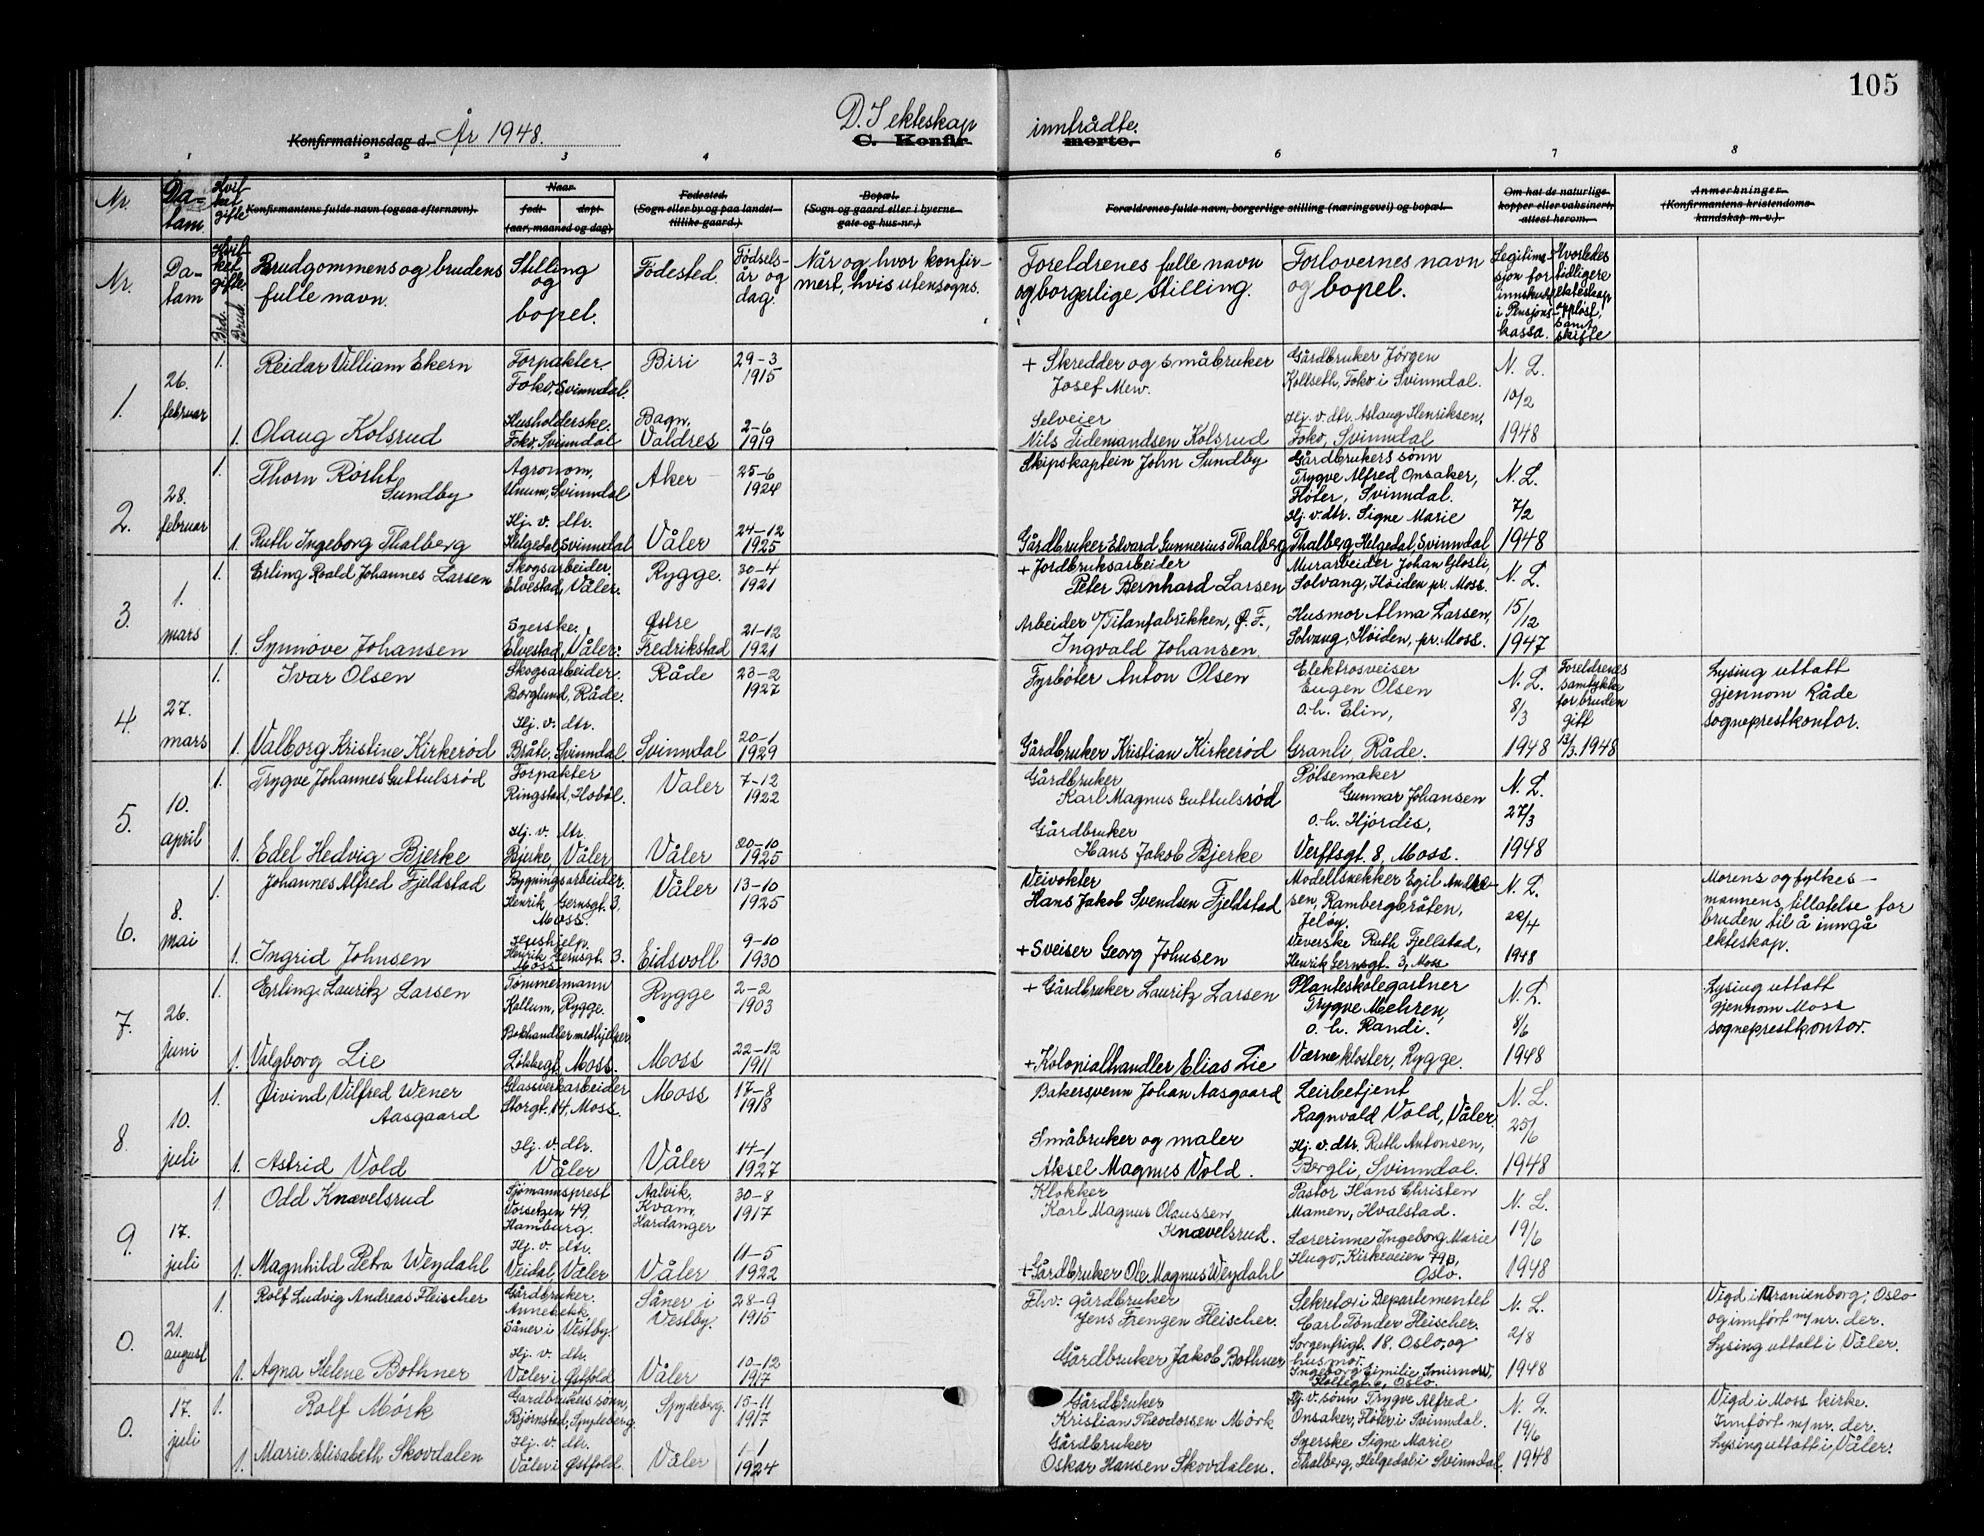 105
D. I ekteskap inntrådte.
Konfirmationsdag d. År 1948.
C. Konfirmerte.
1 2 3 4 6 7 8
Nr.
Datum
Hvilket gifte
Konfirmantens fulde navn (ogsaa efternavn).
Naar
født
døpt
(aar, maaned og dag)
Fødested.
(Sogn eller by og paa landet
tillike gaard.)
Bopæl.
(Sogn og gaard eller i byerne
gate og hus-nr.)
Forældrenes fulde navn, borgerlige stilling (næringsvei) og bopæl.
Om hat de naturlige
kopper eller vaksinert,
attest herom.
Anmerkninger
(Konfirmantens kristendoms-
kundskap m. v.)
Nr.
Datum
Hvilket gifte
Brd.
Brud
Brudgommens og brudens
fulle navn.
Stilling
og
bopel.
Fødested.
Fødsels-
år og
dag.
Når og hvor konfir-
mert, hvis utensogns.
Foreldrenes fulle navn
og borgerlige stilling.
Forlovernes navn
og bopel.
Legitima-
sjon for
innskudd
i Pensjons-
kassa.
Hvorledes
tidligere
ekteskap
oppløst,
samt
skifte
1.
26.
februar
1.
Reidar Villiam Ekern
Forpakter
Foko, Svinndal.
Biri
29-3
1915
+ Skredder og småbruker
Josef Mew.
Gårdbruker Jørgen
Koltseth, Foko i Svinndal.
N. L.
10/2
1948
1.
Olaug Kolsrud
Husholderske.
Foko, Svinndal
Bagn,
Valdres
2-6
1919
Selveier
Nils Tidemandsen Kolsrud
Hj. v. dtr. Aslaug Henriksen,
Foko, Svinndal
2.
28.
februar
1.
Thorn Røsht
Sundby
Agronom,
Unum, Svinndal
Aker
25-6
1924
Skipskaptein John Sundby
Gårdbrukers sønn
Trygve Alfred Onsaker,
Fløter, Svinndal.
N. L.
7/2
1948
1.
Ruth Ingeborg Thalberg
Hj. v. dtr.
Helgedal, Svinndal
Våler
24-12
1925
Gårdbruker Edvard Gunnerius Thalberg
Hj. v. dtr. Signe Marie
Thalberg, Helgedal, Svinndal
3.
1.
mars
1.
Erling Roald Johannes Larsen
Skogsarbeider,
Elvestad, Våler.
Rygge.
30-4
1921
+ Jordbruksarbeider
Peter Bernhard Larsen
Murarbeider Johan Glosli,
Solvang, Høiden pr. Moss.
N. L.
15/12
1947
1.
Synnøve Johansen
Syerske,
Elvestad, Våler.
Østre
Fredrikstad
21-12
1921
Arbeider v/Titanfabrikken, Ø. F.,
Ingvald Johansen.
Husmor Alma Larsen,
Solvang, Høiden, pr. Moss.
4.
27.
mars
1.
Ivar Olsen
Skogsarbeider.
Borglund, Råde.
Råde
23-2
1927
Fyrbøter Anton Olsen
Elektrosveiser
Eugen Olsen
o. h. Elin,
Granli, Råde.
N. L.
8/3
1948
Foreldrenes
samtykke
for bruden
gitt
13/3. 1948
Lysing uttatt
gjennom Råde
sogneprestkontor.
1.
Valborg Kristine Kirkerød
Hj. v. dtr.
Bråte, Svinndal.
Svinndal
20-1
1929
Gårdbruker Kristian Kirkerød
5.
10.
april
1.
Trygve Johannes Guttulsrød
Forpakter
Ringstad, Hobøl.
Våler
7-12
1922
Gårdbruker
Karl Magnus Guttulsrød
Pølsemaker
Gunnar Johansen
o. h. Hjørdis,
Verftsgt. 8, Moss.
N. L.
27/3
1948
1.
Edel Hedvig Bjerke
Hj. v. dtr.
Bjerke, Våler
Våler
20-10
1925
Gårdbruker
Hans Jakob Bjerke
6.
8.
mai
1.
Johannes Alfred Fjeldstad
Bygningsarbeider.
Henrik Gernsgt. 3,
Moss.
Våler
13-10
1925
Veivokter
Hans Jakob Svendsen Fjeldstad
Modellsnekker Egil Andre-
sen, Rambergbråten,
Jeløy.
N. L.
20/4
1948
Morens og fylkes-
mannens tillatelse for
bruden til å inngå
ekteskap.
1.
Ingrid Johnsen
Hushjelp.
Henrik Gernsgt. 3.
Moss
Eidsvoll
9-10
1930
+ Sveiser Georg Johnsen
Veverske Ruth Fjellstad,
Henrik Gernsgt. 3, Moss
7.
26.
juni
1.
Erling Lauritz Larsen
Tømmermann
Kallum, Rygge.
Rygge
2-2
1903
+ Gårdbruker Lauritz Larsen
Planteskolegartner
Trygve Mehren,
o. h. Randi.
Værne kloster, Rygge.
N. L.
8/6
1948
Lysing uttatt
gjennom Moss
sogneprestkontor.
1.
Valgborg Lie
Bokhandlermedhjelper
Moss.
Moss
22-12
1911
+ Kolonialhandler Elias Lie
8.
10.
juli
1.
Øivind Vilfred Wener
Aasgaard
Glassverkarbeider
Storgt. 14, Moss.
Moss
17-8
1918
Bakersvenn Johan Aasgaard
Leirbetjent
Ragnvald Vold, Våler.
N. L.
25/6
1948
1.
Astrid Vold
Hj. v. dtr.
Våler
Våler
14-1
1927
Småbruker og maler
Aksel Magnus Vold.
Hj. v. dtr Ruth Antonsen,
Bergli, Svinndal.
9.
17.
juli
1.
Odd Knævelsrud
Sjømannsprest
Vorsetzen 49.
Hamburg.
Aalvik,
Kvam,
Hardanger
30-8
1917
Klokker
Karl Magnus Olaussen
Knævelsrud.
Pastor Hans Christen
Mamen, Hvalstad.
N. L.
19/6
1948
1.
Magnhild Petra Weydahl
Hj. v. dtr.
Veidal, Våler
Våler
11-5
1922
+ Gårdbruker Ole Magnus Weydahl
Lærerinne Ingeborg Marie
Hugo, Kirkeveien 79B,
Oslo.
0.
21.
august
1.
Rolf Ludvig Andreas Fleischer
Gårdbruker.
Annebekk
Såner i Vestby.
Såner i
Vestby.
28-9
1915
Fhv: gårdbruker
Jens Frengen Fleischer.
Sekretær i Departementet
Carl Tønder Fleischer.
Sorgenfrigt. 18. Oslo, og
N. L.
2/8
1948
Vigd i Uranienborg, Oslo
og innført m/nr. der.
Lysing uttatt i Våler.
1.
Agna Helene Bothner
Hj. v. dtr.
Våler i Østfold
Våler
10-12
1917
Gårdbruker Jakob Bothner
husmor
Ingeborg Emilie Smirnow,
Holtegt. 6, Oslo.
0.
17.
juli
1.
Rolf Mørk
Gardbrukers sønn,
Bjørnstad, Spydeberg.
Spydeberg.
15-11
1917
Gårdbruker
Kristian Theodorsen Mørk
Hj. v. sønn Trygve Alfred
Onsaker, Fløter i Svinndal.
N. L.
19/6
1948
Vigd i Moss kirke.
Innført m/nr. der.
Lysing uttatt i Våler.
1.
Marie Elisabeth Skovdalen
Hj. v. dtr.
Våler i Østfold.
Våler
1-1
1924
Gårdbruker
Oskar Hansen Skovdalen.
Syerske Signe Marie
Thalberg, Helgedal i Svinndal.